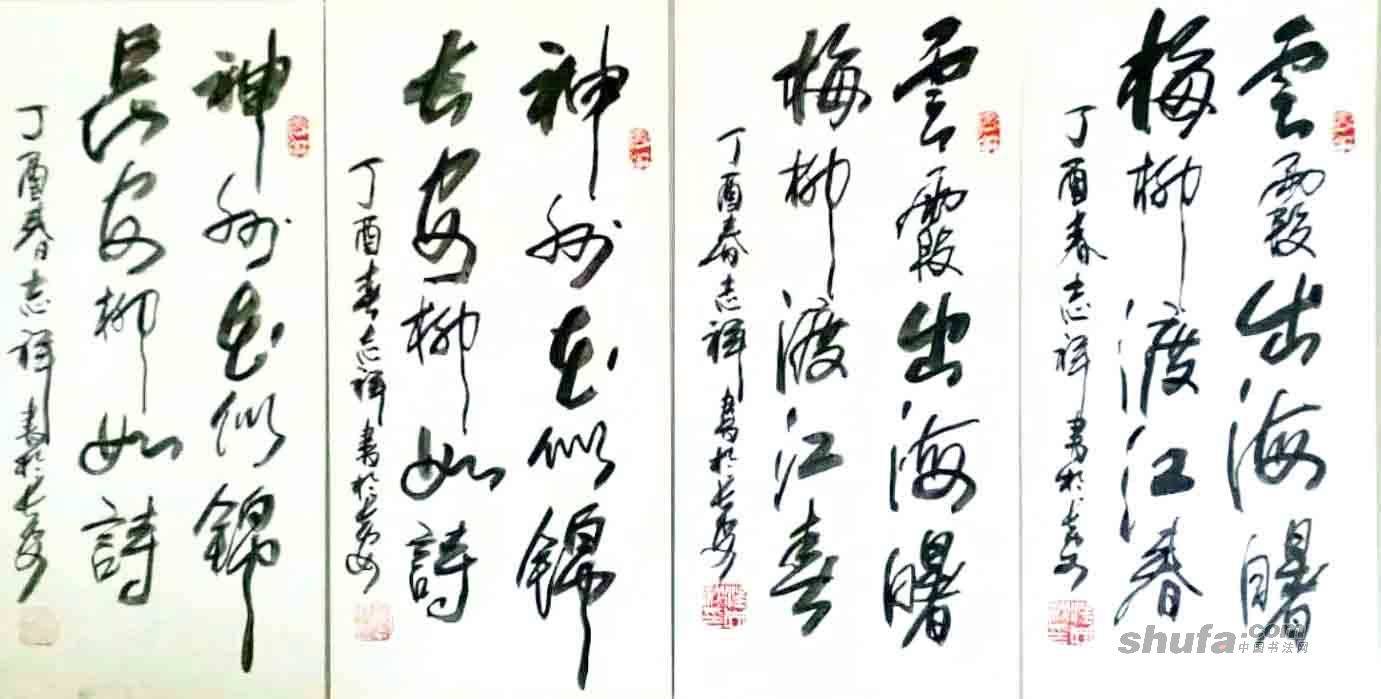 雲霞出海曙
梅柳渡江春
丁酉春志祥書於長安
雲霞出海曙
梅柳渡江春
丁酉春志祥書於長安
神州花似錦
长安柳如詩
丁酉春志祥書於長安
神州花似錦
長安柳如詩
丁酉春志祥書於長安
shufa.com
中国书法网